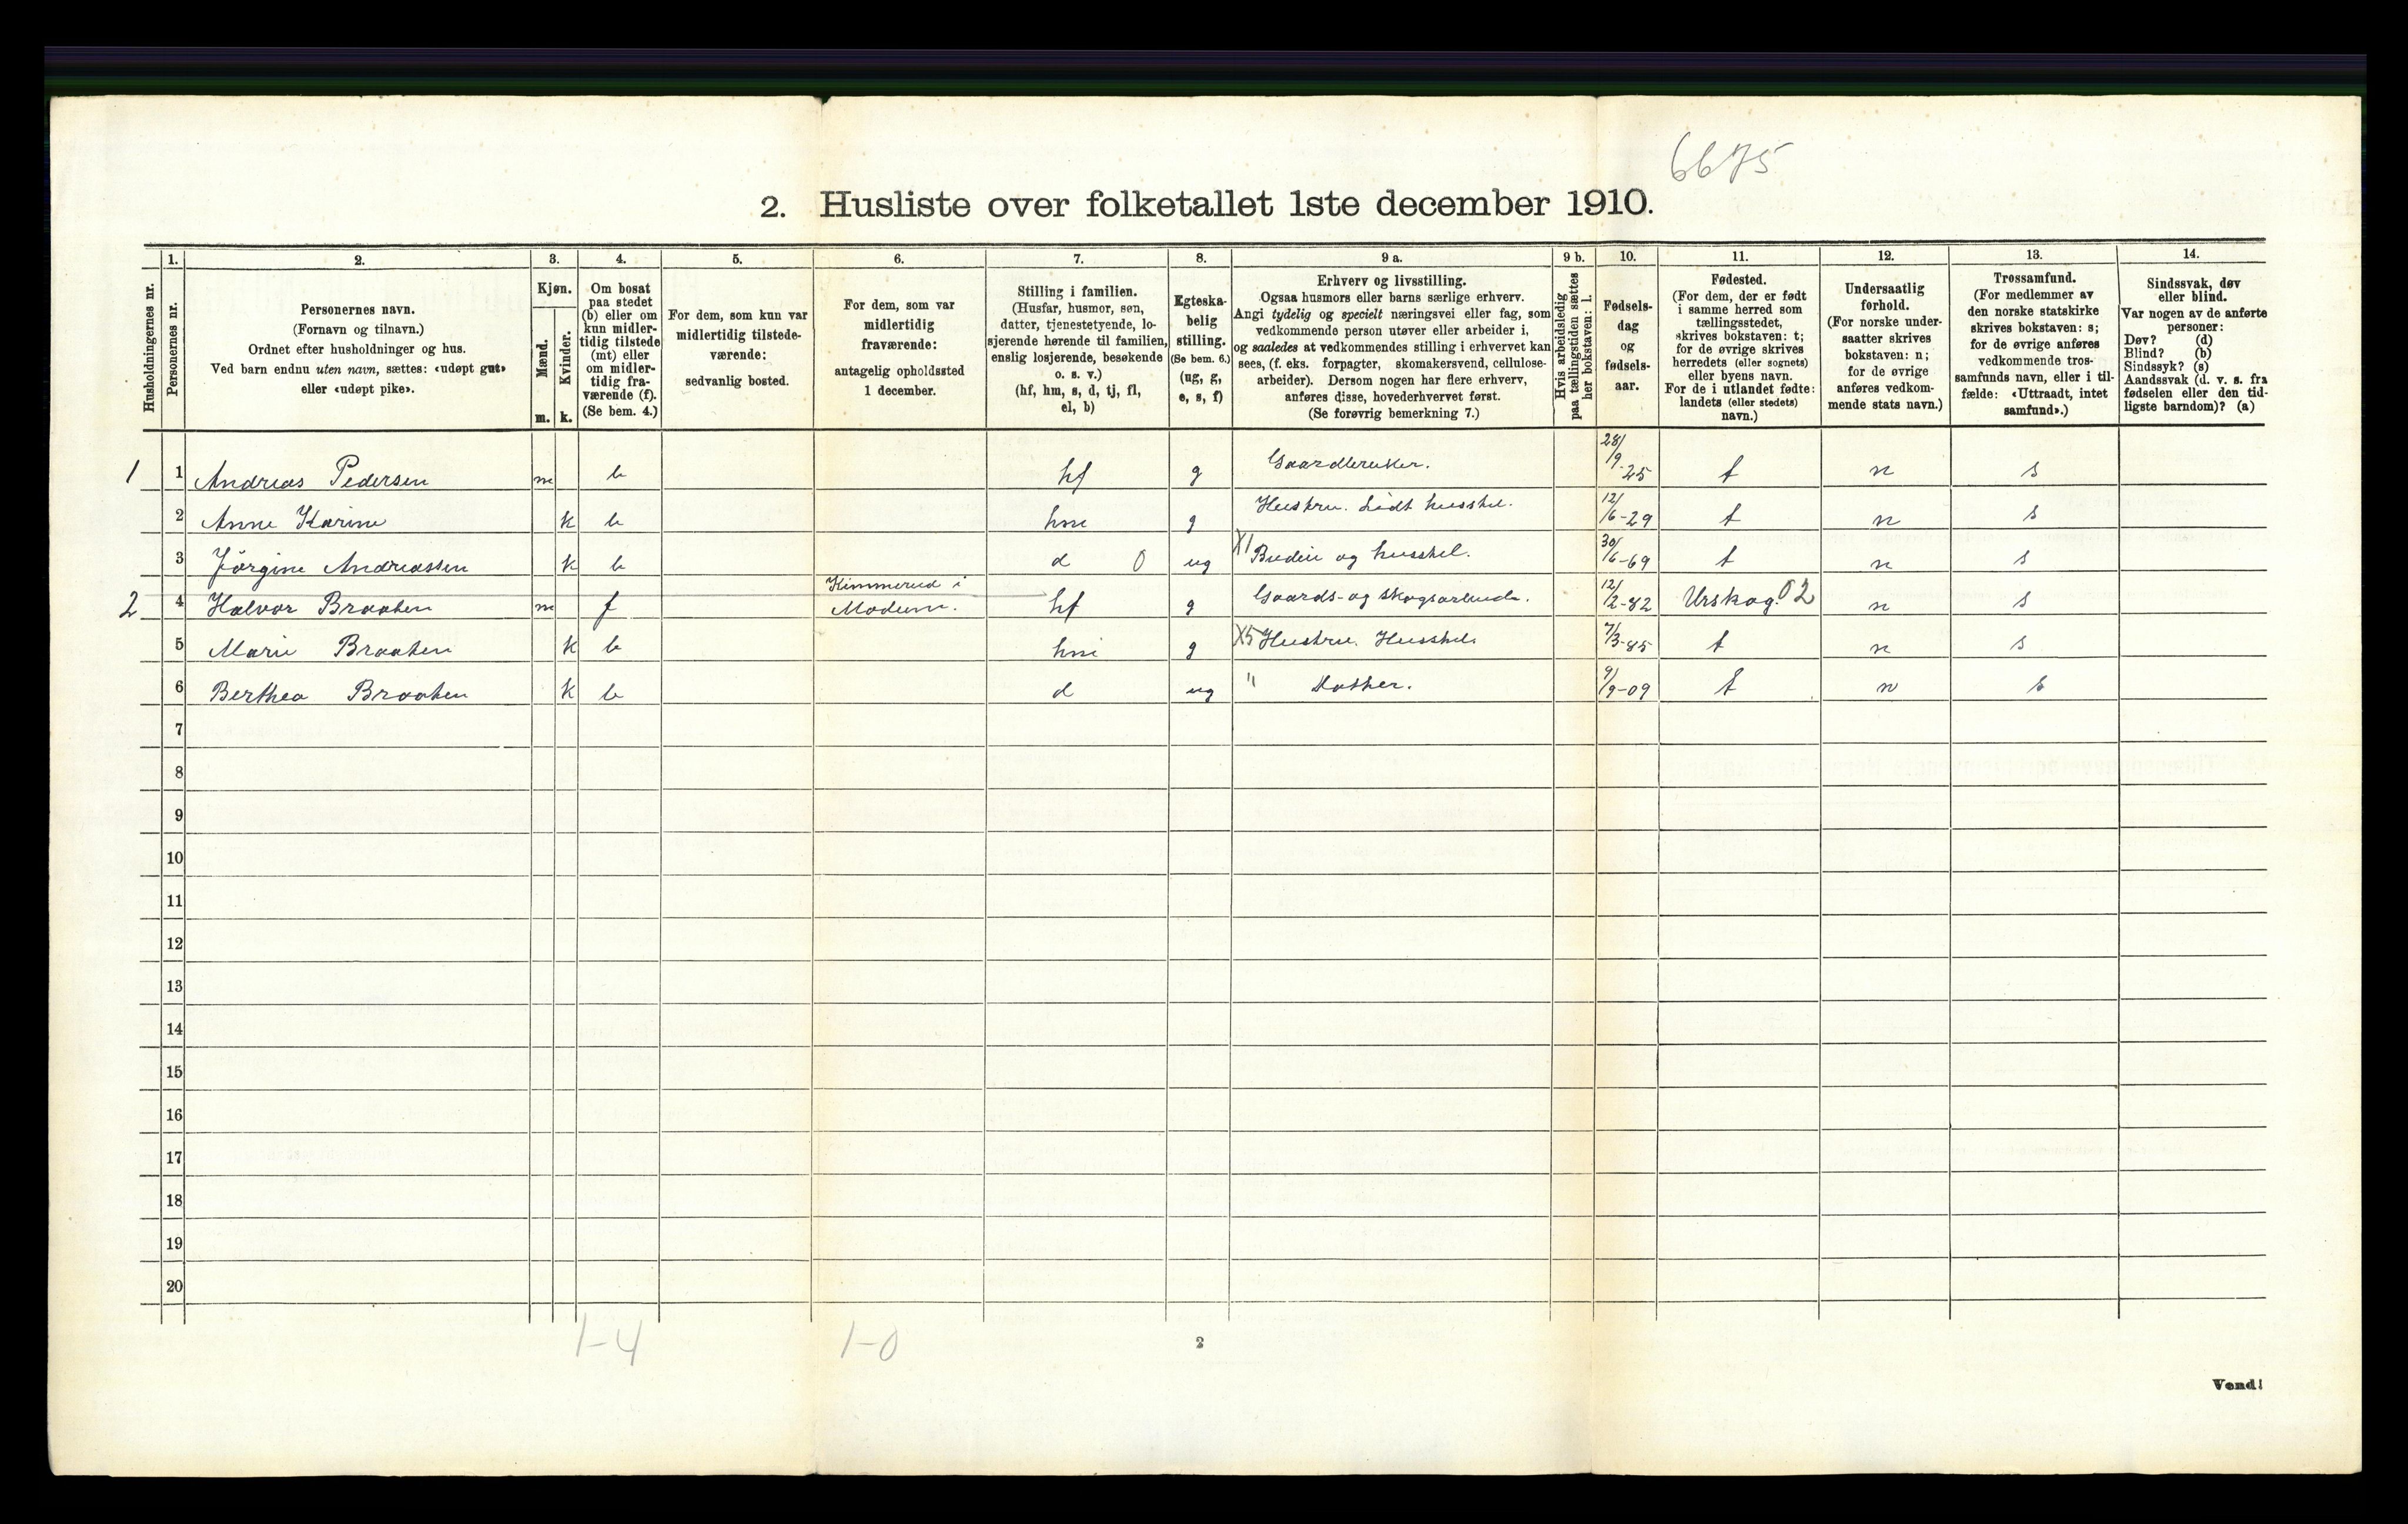 6675
2. Husliste over folketallet 1ste december 1910.
Husholdningernes nr.
1.
Personernes nr.
2.
Personernes navn.
(Fornavn og tilnavn.)
Ordnet efter husholdninger og hus.
Ved barn endnu uten navn, sættes: «udøpt gut»
eller «udøpt pike».
3.
Kjøn.
Mænd.
m.
Kvinder.
k.
4.
Om bosat
paa stedet
(b) eller om
kun midler-
tidig tilstede
(mt) eller
om midler-
tidig fra-
værende (f).
(Se bem. 4.)
5.
For dem, som kun var
midlertidig tilstede-
værende:
sedvanlig bosted.
6.
For dem, som var
midlertidig
fraværende:
antagelig opholdssted
1 december.
7.
Stilling i familien.
(Husfar, husmor, søn,
datter, tjenestetyende, lo-
sjerende hørende til familien,
enslig losjerende, besøkende
o. s. v.)
(hf, hm, s, d, tj, fl,
el, b)
8.
Egteska-
belig
stilling.
(Se bem. 6.)
(ug, g,
e, s, f)
9 a.
Erhverv og livsstilling.
Ogsaa husmors eller barns særlige erhverv.
Angi tydelig og specielt næringsvei eller fag, som
vedkommende person utøver eller arbeider i,
og saaledes at vedkommendes stilling i erhvervet kan
sees, (f. eks. forpagter, skomakersvend, cellulose-
arbeider). Dersom nogen har flere erhverv,
anføres disse, hovederhvervet først.
(Se forøvrig bemerkning 7.)
9 b.
Hvis arbeidsledig
paa tællingstiden sættes
her bokstaven: l.
10.
Fødsels-
dag
og
fødsels-
aar.
11.
Fødested.
(For dem, der er født
i samme herred som
tællingsstedet,
skrives bokstaven: t;
for de øvrige skrives
herredets (eller sognets)
eller byens navn.
For de i utlandet fødte:
landets (eller stedets)
navn.)
12.
Undersaatlig
forhold.
(For norske under-
saatter skrives
bokstaven: n;
for de øvrige
anføres vedkom-
mende stats navn.)
13.
Trossamfund.
(For medlemmer av
den norske statskirke
skrives bokstaven: s;
for de øvrige anføres
vedkommende tros-
samfunds navn, eller i til-
fælde: «Uttraadt, intet
samfund».)
14.
Sindssvak, døv
eller blind.
Var nogen av de anførte
personer:
Døv? (d)
Blind? (b)
Sindssyk? (s)
Aandssvak (d. v. s. fra
fødselen eller den tid-
ligste barndom)? (a)
1 1 Andreas Pedersen m b hf g Gaardbruker. 28/9-25 t n s
2 Anne Karine k b hm g Hustru. Lidt husstel. 12/6-29 t n s
3 Jörgine Andreassen k b d 0 ug X1 Budeie og husstel. 30/6-69 t n s
2 4 Halvor Braaten m f Kimmerud i Modum. hf g Gaards- og skogsarbeide. 12/2-82 Urskog. 02 n s
5 Marie Braaten k b hm g X5 Hustru. Husstel. 7/3-85 t n s
6 Berthea Braaten k b d ug " Datter. 9/9-09 t n s
7
8
9
10
11
12
13
14
15
16
17
18
19
20
1-4 1-0 2
Vend!